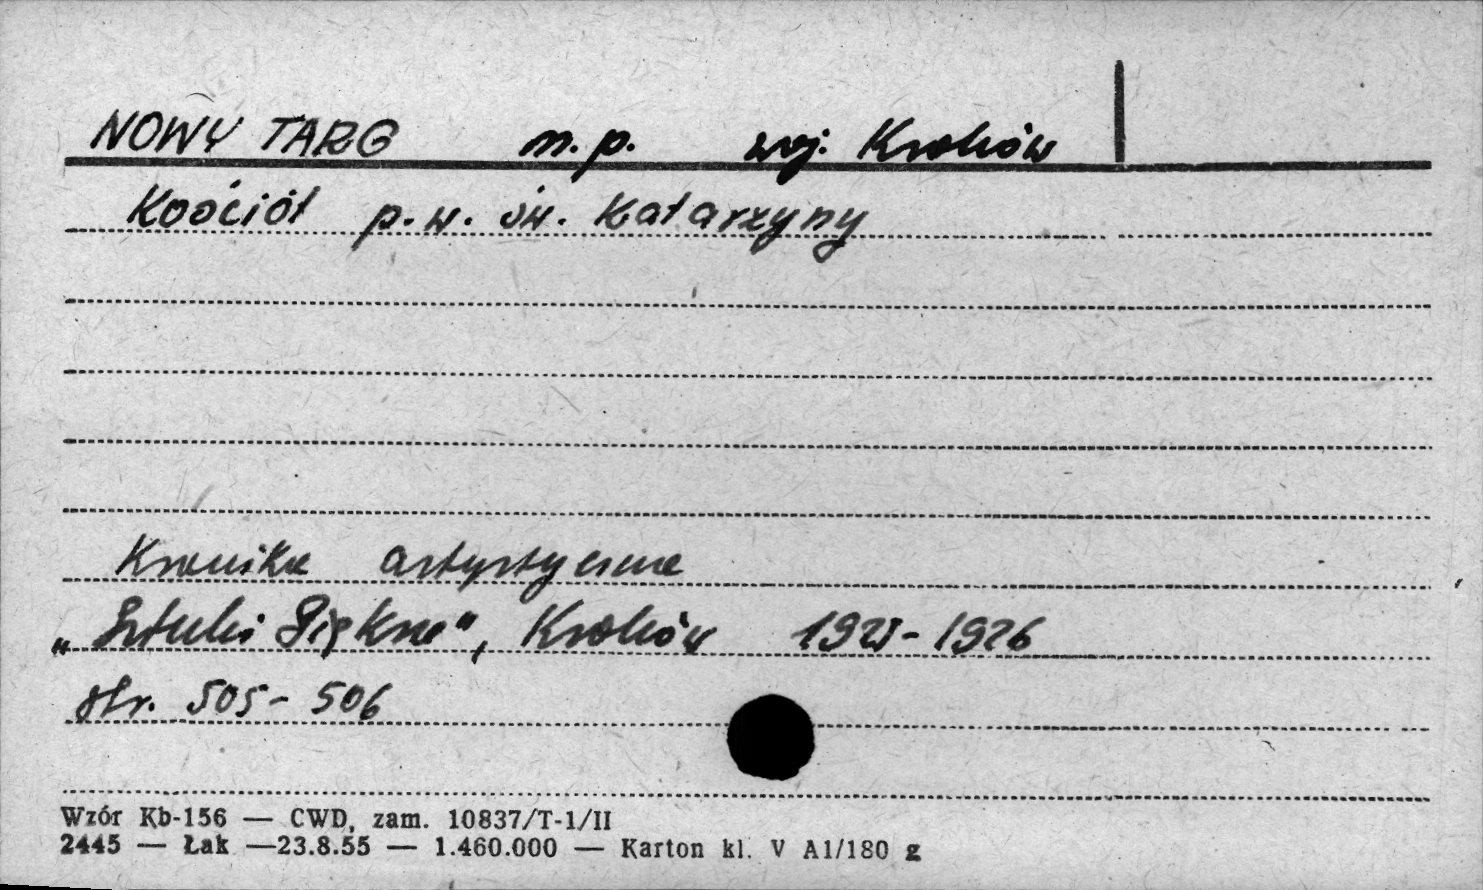 NOWY TARG m.p. woj. Kraków
Kościół p.w. św. Katarzyny
Kronika artystyczna
„Sztuki Piękne", Kraków 1925-1926
str. 505-506
Wzór Kb-156 — CWD, zam. 10837/T-1/II
2445 — Łak —23.8.55 — 1.460.000 — Karton kl. V A1/180 g